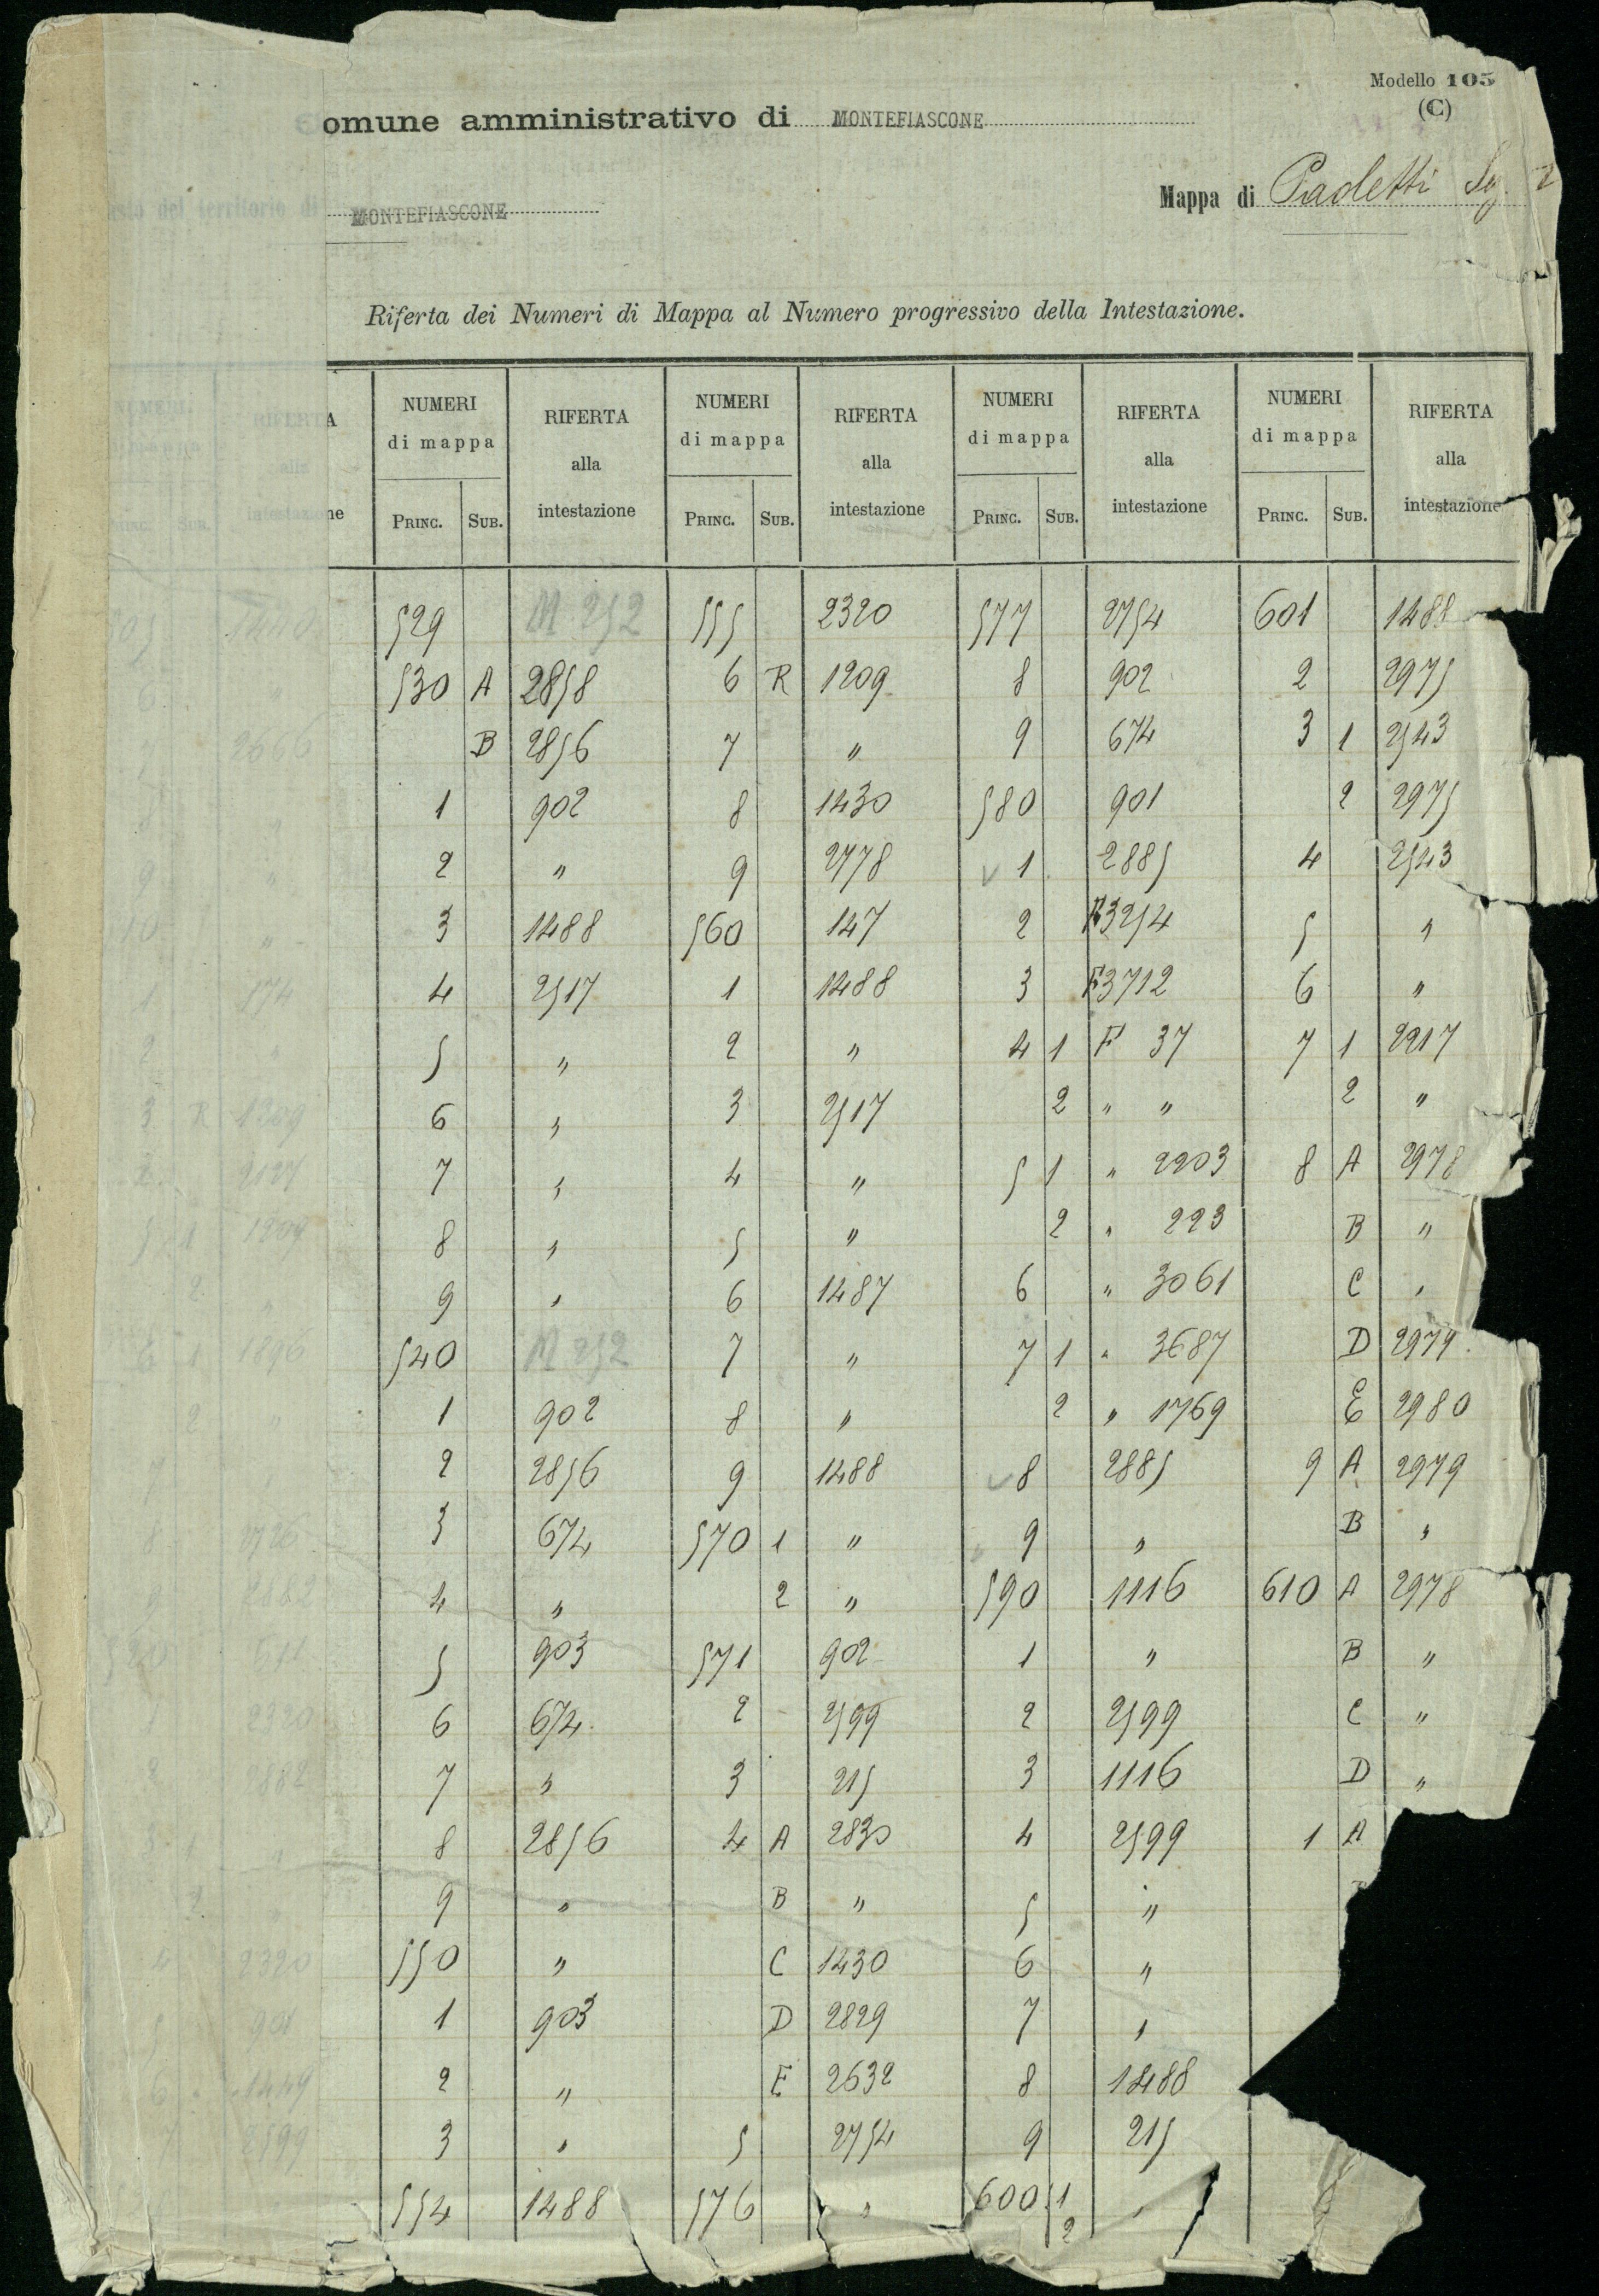 Modello 105
(C)
omune amministrativo di MONTEFIASCONE
Mappa di Paoletti
del territorio di MONTEFIASCONE
Riferta dei Numeri di Mappa al Numero progressivo della Intestazione.
NUMERI di mappa RIFERTA alla intestazione NUMERI di mappa RIFERTA alla intestazione NUMERI di mappa RIFERTA alla intestazione NUMERI di mappa RIFERTA alla intestazione
PRINC. SUB. PRINC. SUB. PRINC. SUB. PRINC. SUB.
529 M 252 555 2320 577 2754 601 1488
530 A 2858 6 R 1209 8 902 2 2975
B 2856 7 " 9 674 3 1 2543
1 902 8 1430 580 901 2 2975
2 " 9 2778 1 2885 4 2543
3 1488 560 147 2 F3254 5 "
4 2517 1 1488 3 F3712 6 "
5 " 2 " 4 1 F 37 7 1 2217
6 " 3 2517 2 " " 2 "
7 " 4 " 5 1 " 2203 8 A 2978
8 " 5 " 2 " 223 B "
9 " 6 1487 6 " 3061 C "
540 M 252 7 " 7 1 " 3687 D 2979
1 902 8 " 2 " 1769 E 2980
2 2856 9 1488 8 2885 9 A 2979
3 674 570 1 " 9 " B "
4 " 2 " 590 1116 610 A 2978
5 903 571 902 1 " B "
6 674 2 2599 2 2599 C "
7 " 3 215 3 1116 D "
8 2856 4 A 2830 4 2599 1 A
9 " B " 5 "
550 " C 1430 6 "
1 903 D 2829 7 "
2 " E 2632 8 1488
3 " 5 2754 9 215
554 1488 576 " 600 1 "
2